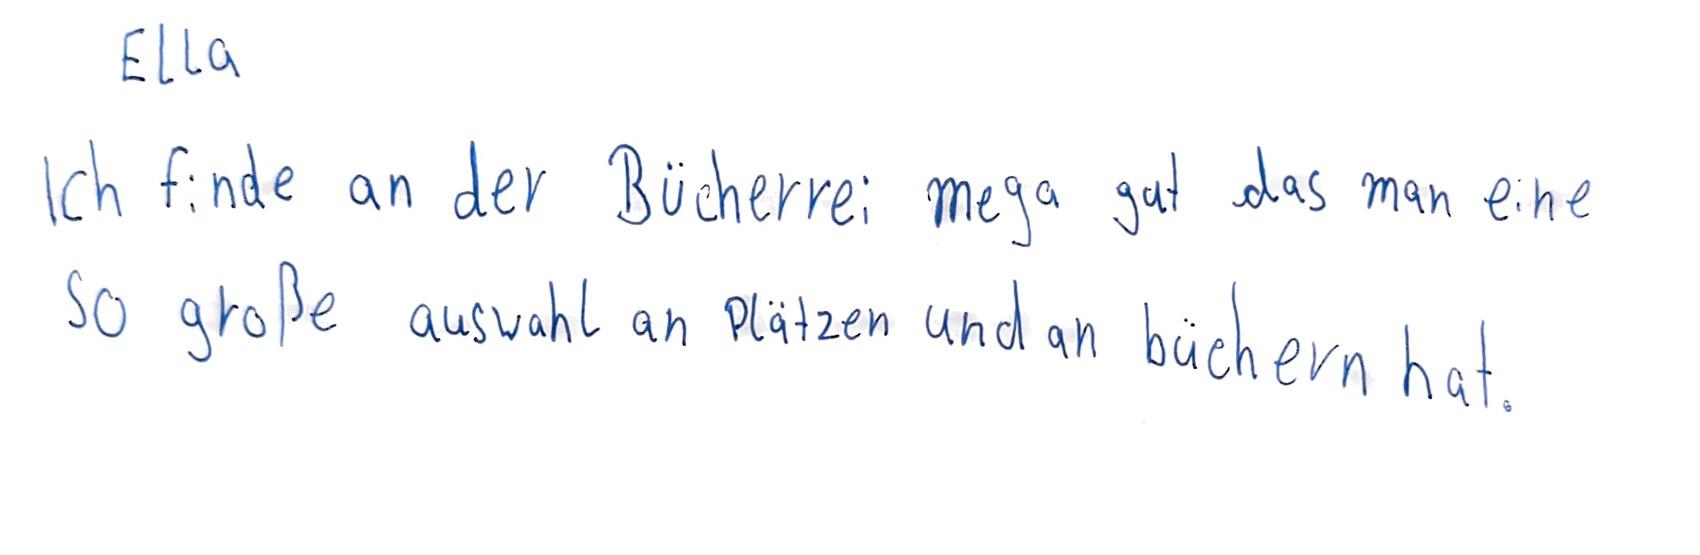 Ella
Ich finde an der Bücherrei mega gut das man eine
so große auswahl an Plätzen und an büchern hat.